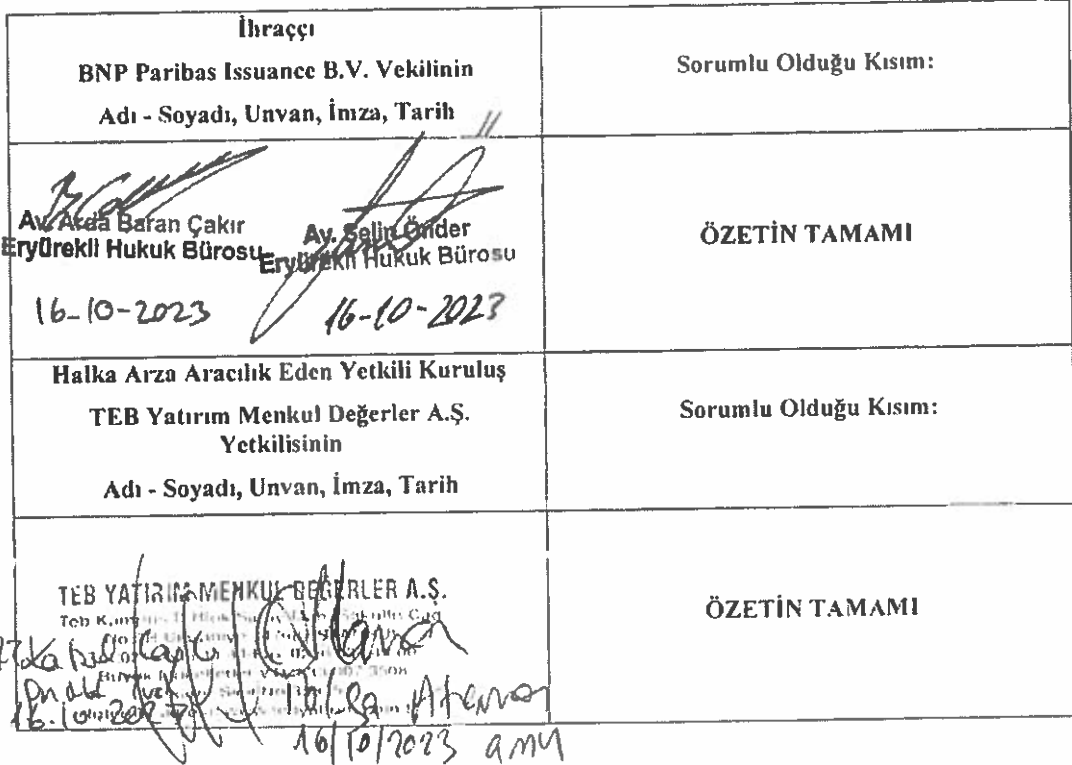 İhraççı
BNP Paribas Issuance B.V. Vekilinin
Adı - Soyadı, Unvan, İmza, Tarih
Sorumlu Olduğu Kısım:
Av. Arda Baran Çakır
Eryürekli Hukuk Bürosu
16-10-2023
Av. Selin Önder
Eryürekli Hukuk Bürosu
16-10-2023
ÖZETİN TAMAMI
Halka Arza Aracılık Eden Yetkili Kuruluş
TEB Yatırım Menkul Değerler A.Ş.
Yetkilisinin
Adı - Soyadı, Unvan, İmza, Tarih
Sorumlu Olduğu Kısım:
TEB YATIRIM MENKUL DEĞERLER A.Ş.
16.10.2023
16/10/2023
ÖZETİN TAMAMI